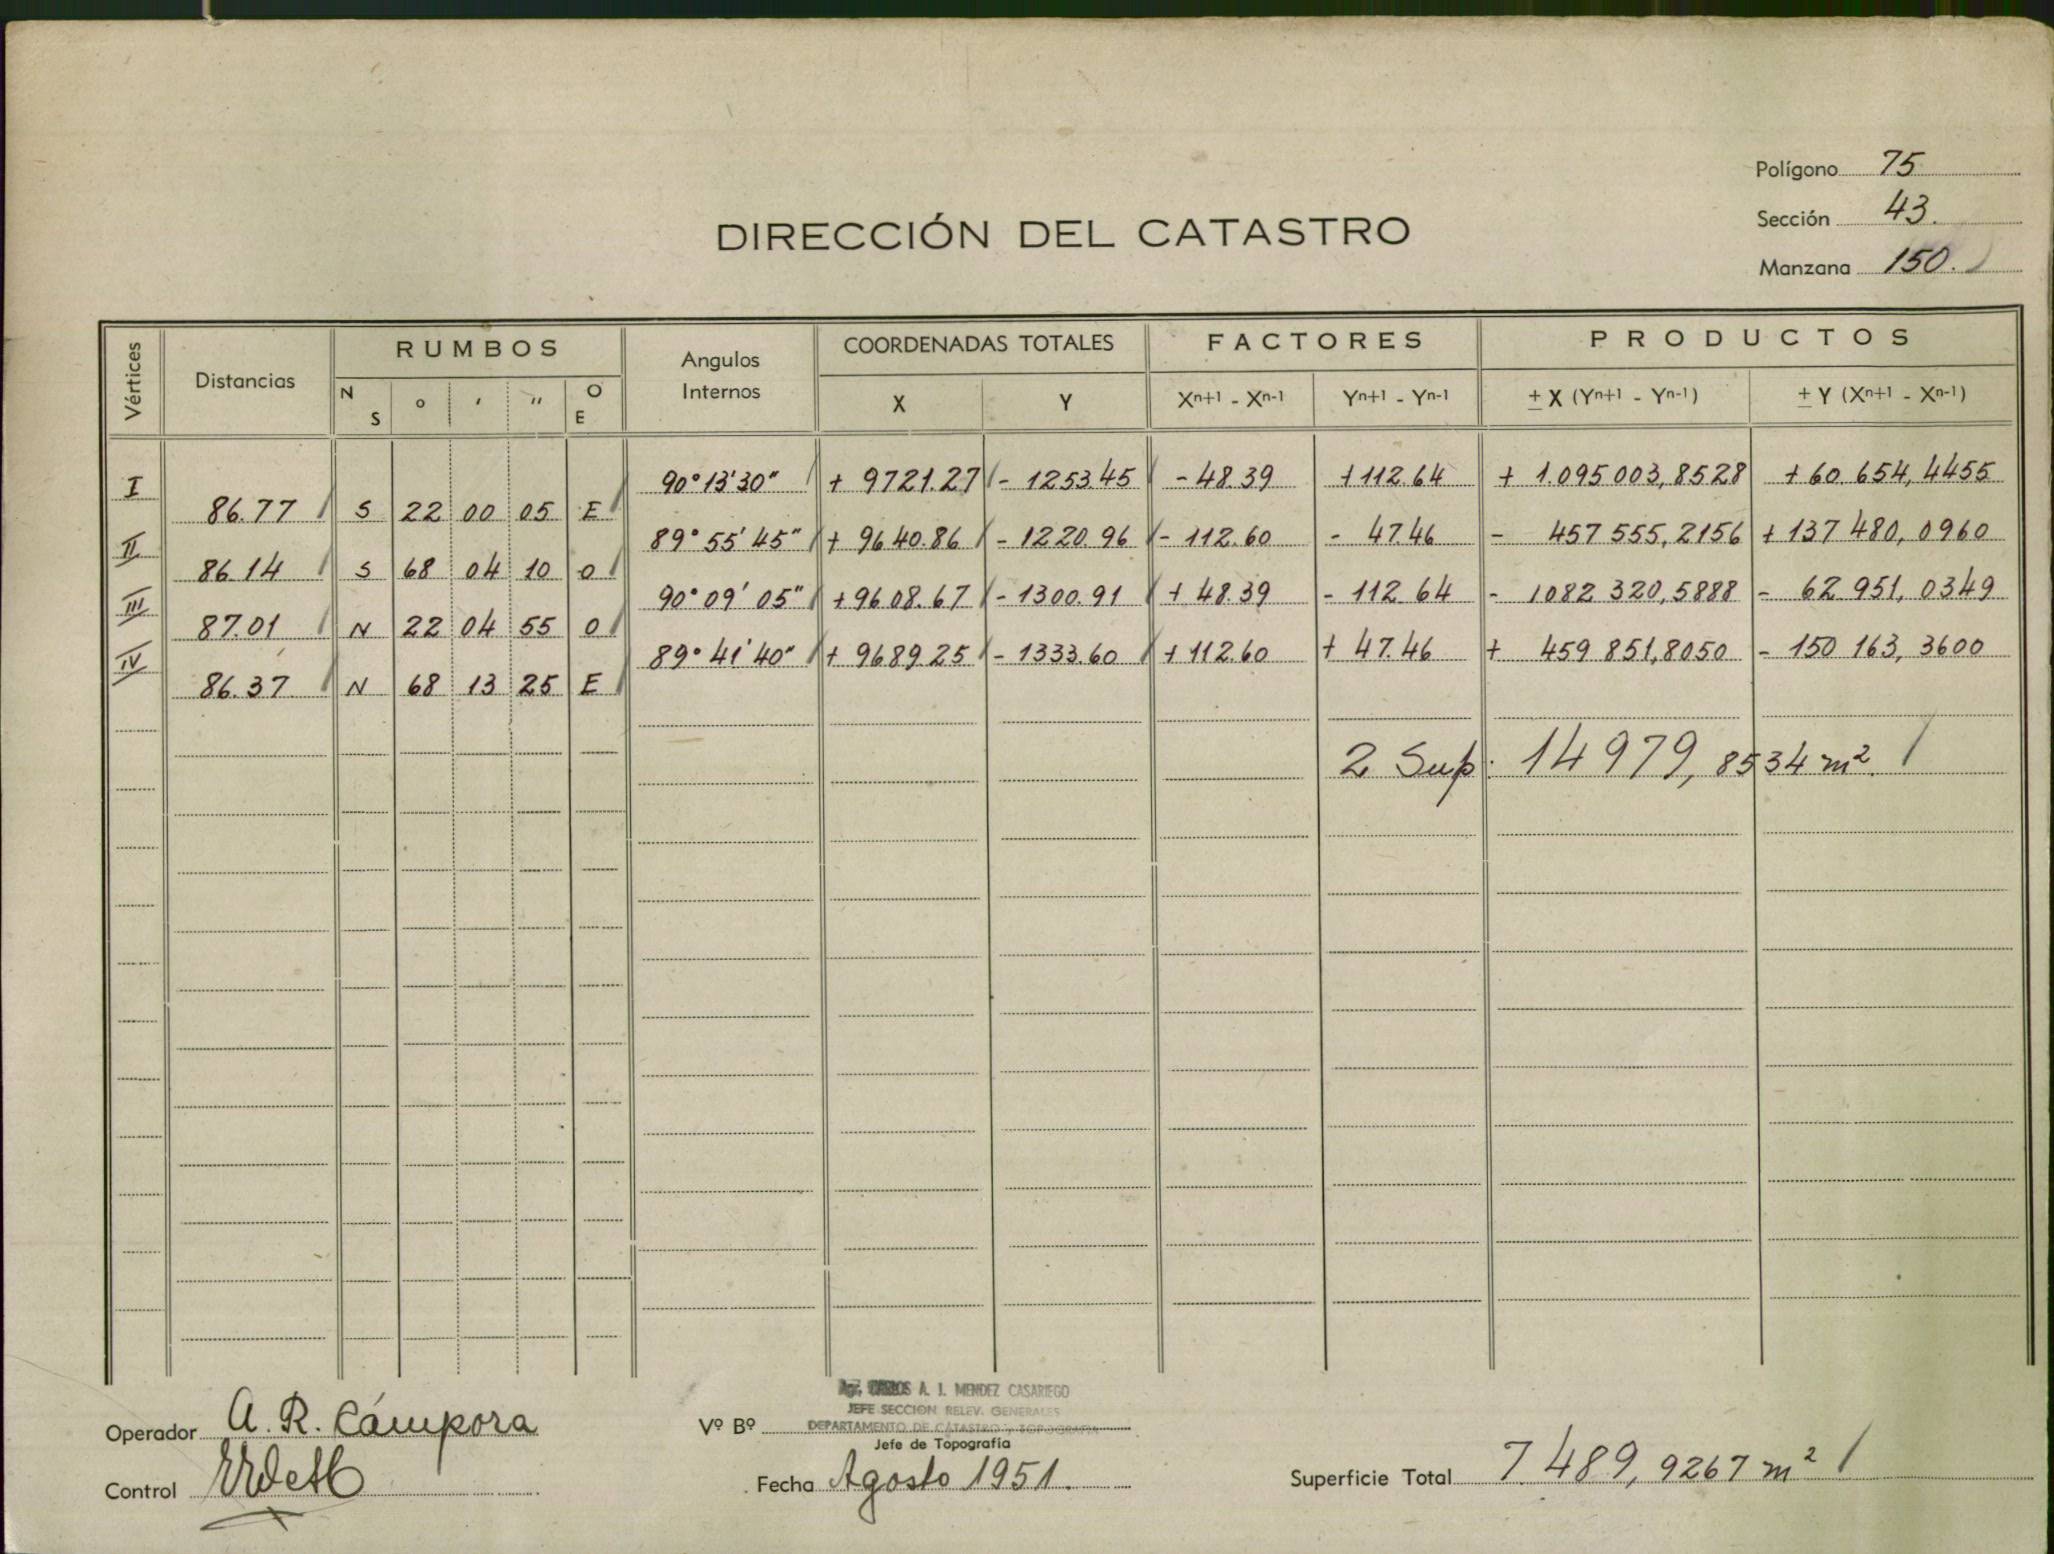 Polígono 75
Sección 43.
Manzana 150.
DIRECCIÓN DEL CATASTRO
Vértices Distancias RUMBOS Angulos Internos COORDENADAS TOTALES FACTORES PRODUCTOS
N S ° ′ ″ O E X Y Xn+1 - Xn-1 Yn+1 - Yn-1 ± X (Yn+1 - Yn-1) ± Y (Xn+1 - Xn-1)
I 90° 13' 30" + 9721.27 - 1253.45 - 48.39 + 112.64 + 1.095 003,8528 + 60 654,4455
86.77 S 22 00 05 E
II 89° 55' 45" + 9640.86 - 1220.96 - 112.60 - 47.46 - 457 555,2156 + 137 480,0960
86.14 S 68 04 10 O
III 90° 09' 05" + 9608.67 - 1300.91 + 48.39 - 112.64 - 1082 320,5888 - 62 951,0349
87.01 N 22 04 55 O
IV 89° 41' 40" + 9689.25 - 1333.60 + 112.60 + 47.46 + 459 851,8050 - 150 163,3600
86.37 N 68 13 25 E
2 Sup: 14979,8534 m²
Operador A. R. Cámpora
Control
Vº Bº
Agr. CARLOS A. J. MENDEZ CASARIEGO
JEFE SECCION RELEV. GENERALES
DEPARTAMENTO DE CATASTRO y TOPOGRAFIA
Jefe de Topografía
Fecha Agosto 1951.
Superficie Total 7.489,9267 m²